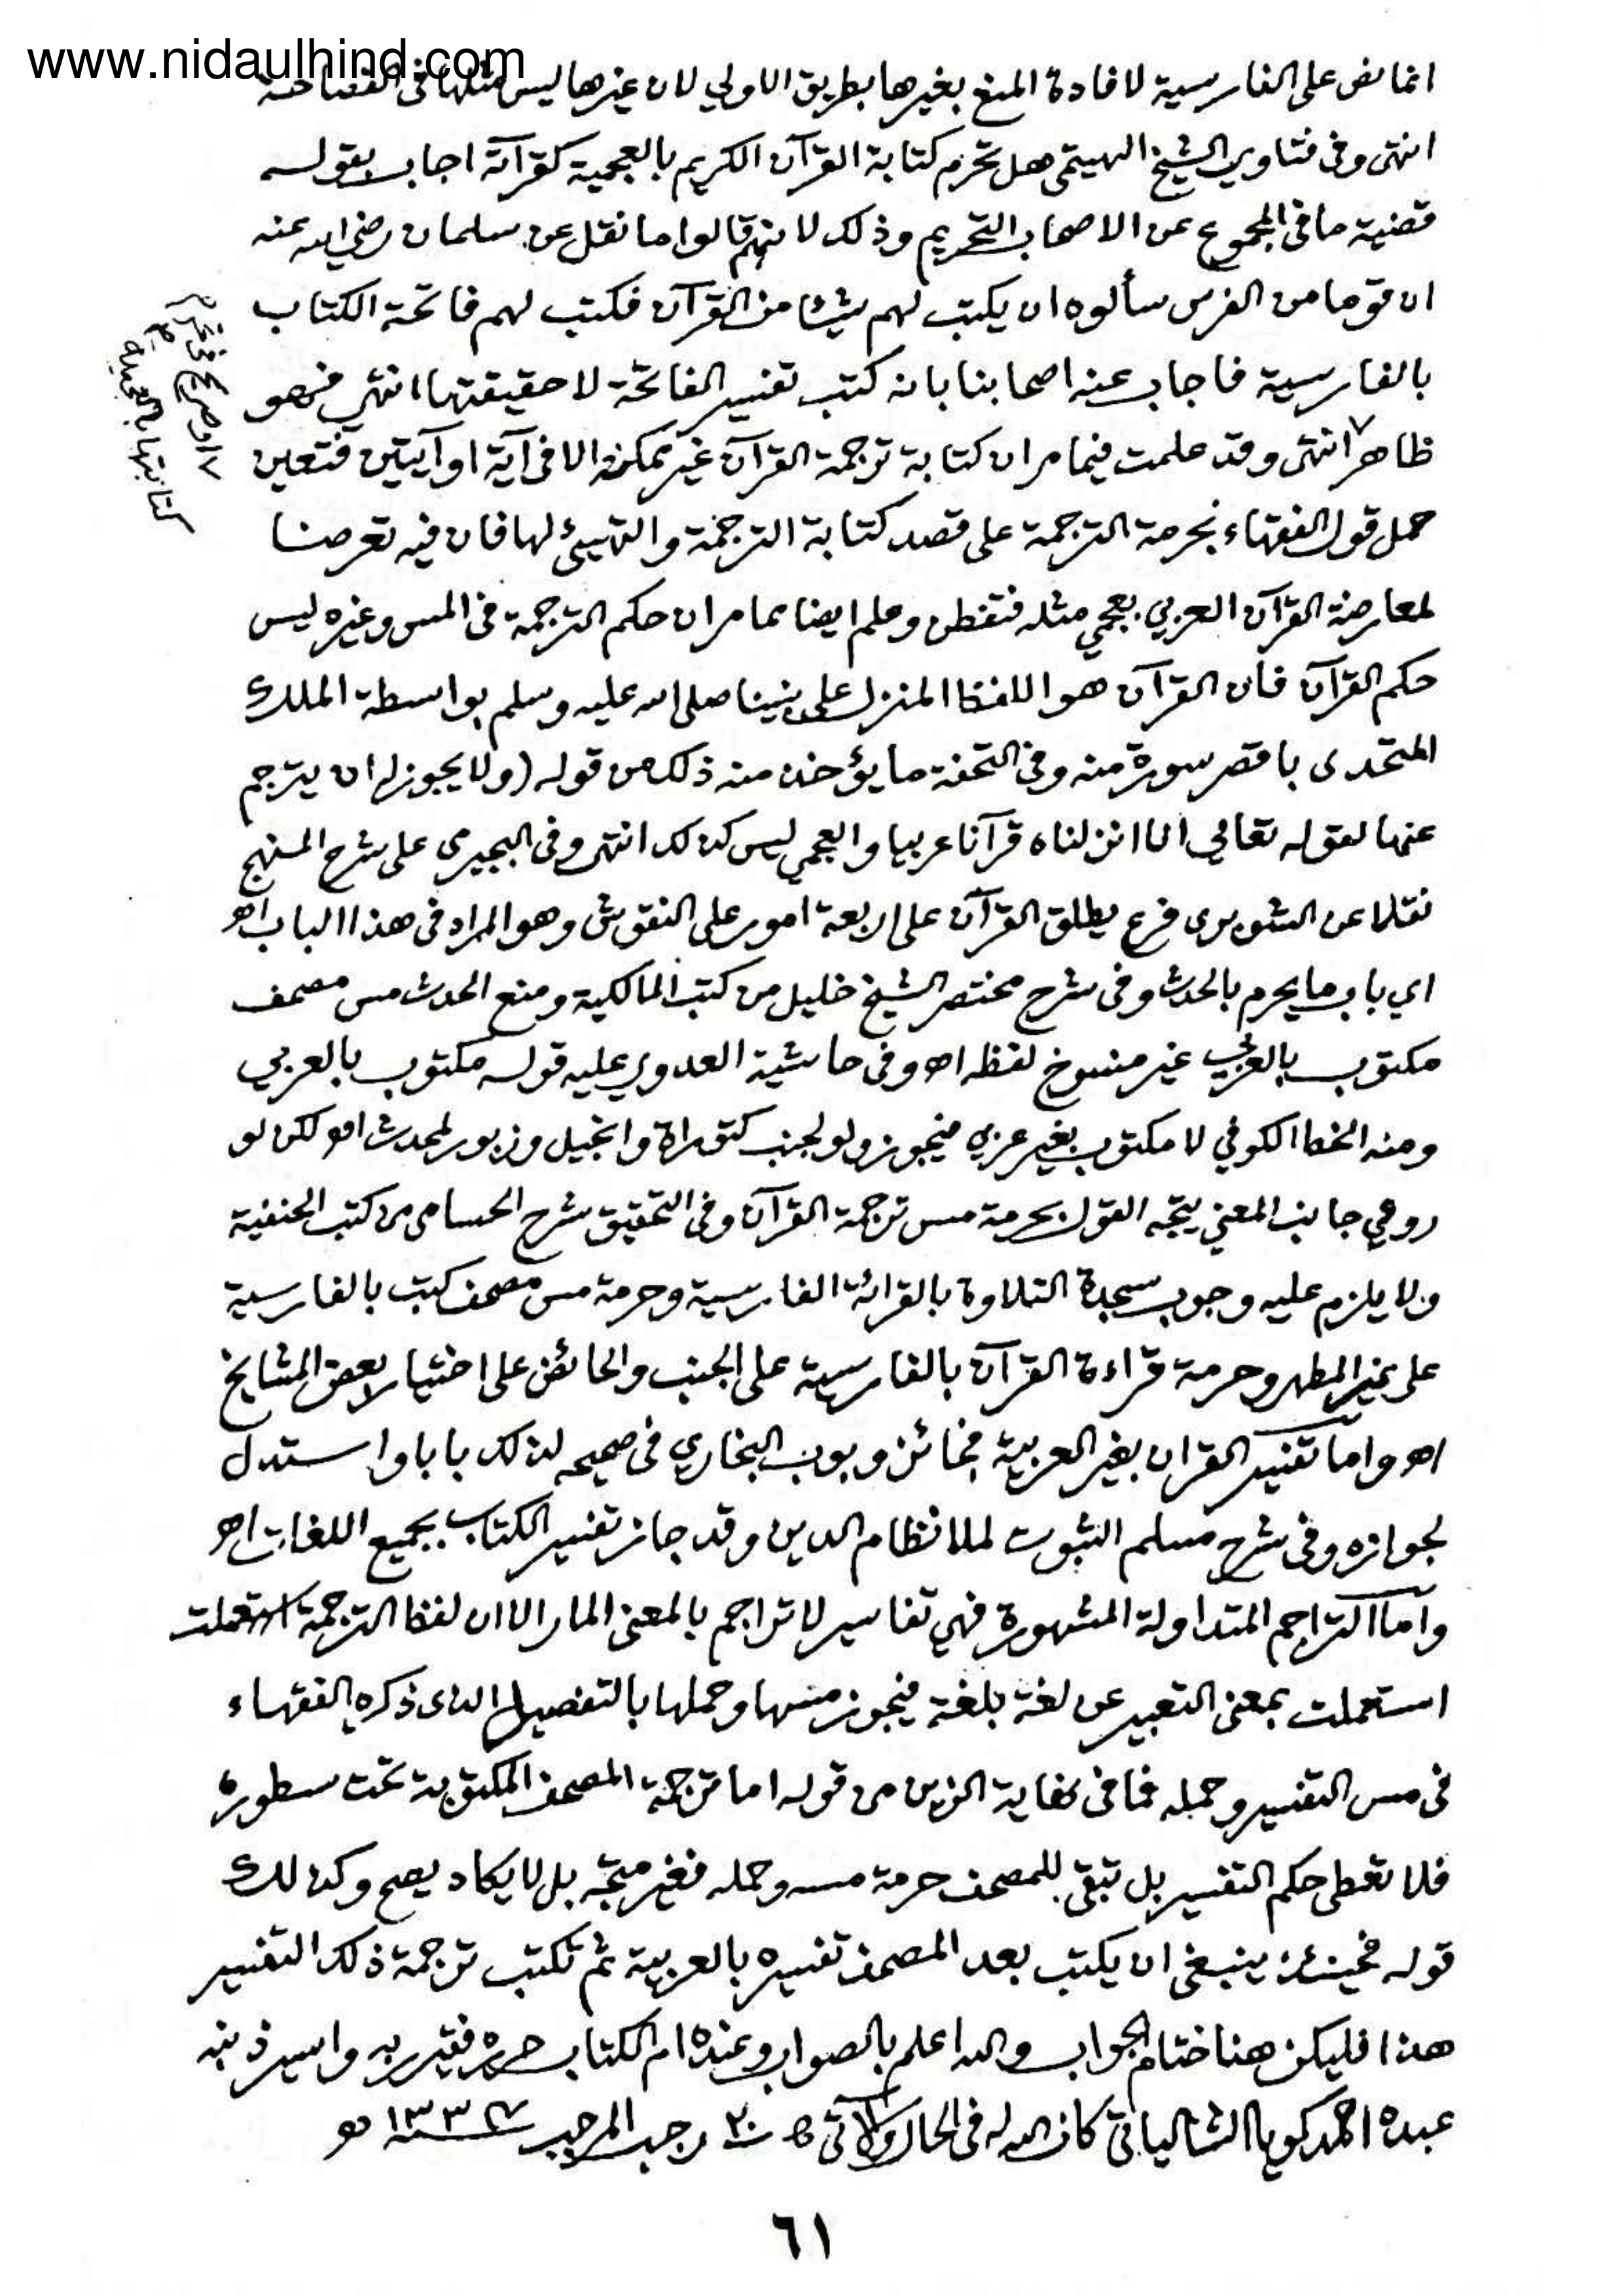 www.nidaulhind.com
انما نص على الفارسية لافادة المنع بغيرها بطريق الاولي لان غيرها ليس مثلها فى الفصاحة
انتهى وفى فتاوي الشيخ الهيتمى هل تحرم كتابة القرآن الكريم بالعجمية كقرآته اجاب بقوله
قضية ما فى المجموع عن الاصحاب التحريم وذلك لانهم قالوا ما نقل عن سلمان رضي الله عنه
ان قوما من الفرس سألوه ان يكتب لهم شيئا من القرآن فكتب لهم فاتحة الكتاب
بالفارسية فاجاب عنه اصحابنا بانه كتب تفسير الفاتحة لا حقيقتها انتهى فهو
ظاهر انتهى وقد علمت فيما مر ان كتابة ترجمة القرآن غير ممكنة الا فى آية او آيتين فتعين
حمل قول الفقهاء بحرمة الترجمة على قصد كتابة الترجمة والتهيئ لها فان فيه تعرضا
لمعارضة القرآن العربي بعجمي مثله فتفطن وعلم ايضا مما مر ان حكم الترجمة فى المس وغيره ليس
حكم القرآن فان القرآن هو اللفظ المنزل على نبينا صلى الله عليه وسلم بواسطة الملك
المتحدى باقصر سورة منه وفى التحفة ما يؤخذ منه ذلك من قوله (ولا يجوز له ان يترجم
عنها لقوله تعالي انا انزلناه قرآنا عربيا والعجمي ليس كذلك انتهى وفى البجيرمى على شرح المنهج
نقلا عن الشوبرى فرع يطلق القرآن على اربعة امور على النقوش وهو المراد فى هذا الباب اهـ
اي باب ما يحرم بالحدث وفى شرح مختصر الشيخ خليل من كتب المالكية ومنع الحدث مس مصحف
مكتوب بالعربي غير منسوخ لفظه اهـ وفى حاشية العدوي عليه قوله مكتوب بالعربي
ومنه الخط الكوفي لا مكتوب بغير عربي فيجوز ولو لجنب كتوراة وانجيل وزبور لمحدث اهـ لكن لو
روعي جانب المعني يتجه القول بحرمة مس ترجمة القرآن وفى التحقيق شرح الحسامى من كتب الحنفية
ولا يلزم عليه وجوب سجدة التلاوة بالقرائة الفارسية وحرمة مس مصحف كتب بالفارسية
على غير المطهر وحرمة قراءة القرآن بالفارسية على الجنب والحائض على اختيار بعض المشايخ
اهـ واما تفسير القران بغير العربية فجائز وبوب البخاري فى صحيحه لذلك بابا واستدل
لجوازه وفى شرح مسلم الثبوت لملا نظام الدين وقد جاز تفسير الكتاب بجميع اللغات اهـ
واما التراجم المتداولة المشهورة فهي تفاسير لا تراجم بالمعنى المار الا ان لفظ الترجمة استعملت
استعملت بمعنى التعبير عن لغة بلغة فيجوز مسها وحملها بالتفصيل الذى ذكره الفقهاء
فى مس التفسير وحمله فما فى نهاية الزين من قوله اما ترجمة المصحف المكتوبة تحت سطوره
فلا تعطى حكم التفسير بل تبقى للمصحف حرمة مسه وحمله فغير متجه بل لا يكاد يصح وكذلك
قوله فحينئذ ينبغى ان يكتب بعد المصحف تفسيره بالعربية ثم تكتب ترجمة ذلك التفسير
هذا فليكن هنا ختام الجواب والله اعلم بالصواب وعنده ام الكتاب حرره فقير ربه واسير ذنبه
عبده احمد كويا الشالياتى كان الله له فى الحال والآتى ٢٠ رجب المرجب
٦١
كتابتها بالعجمية